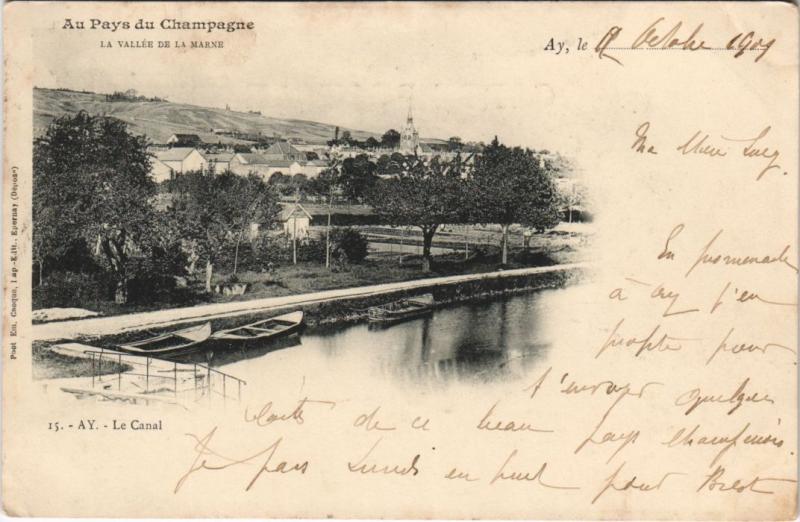 Au Pays du Champagne
LA VALLÉE DE LA MARNE
Ay, le 9 Octobre 1901
Ma
En promenade
à Ay j'en
profite pour
t'envoyer quelques
cartes de ce beau pays champenois.
Je pars Lundi pour
15. - AY. - Le Canal
Phot Em. Choque, Imp.-Edit., Epernay (Déposé)